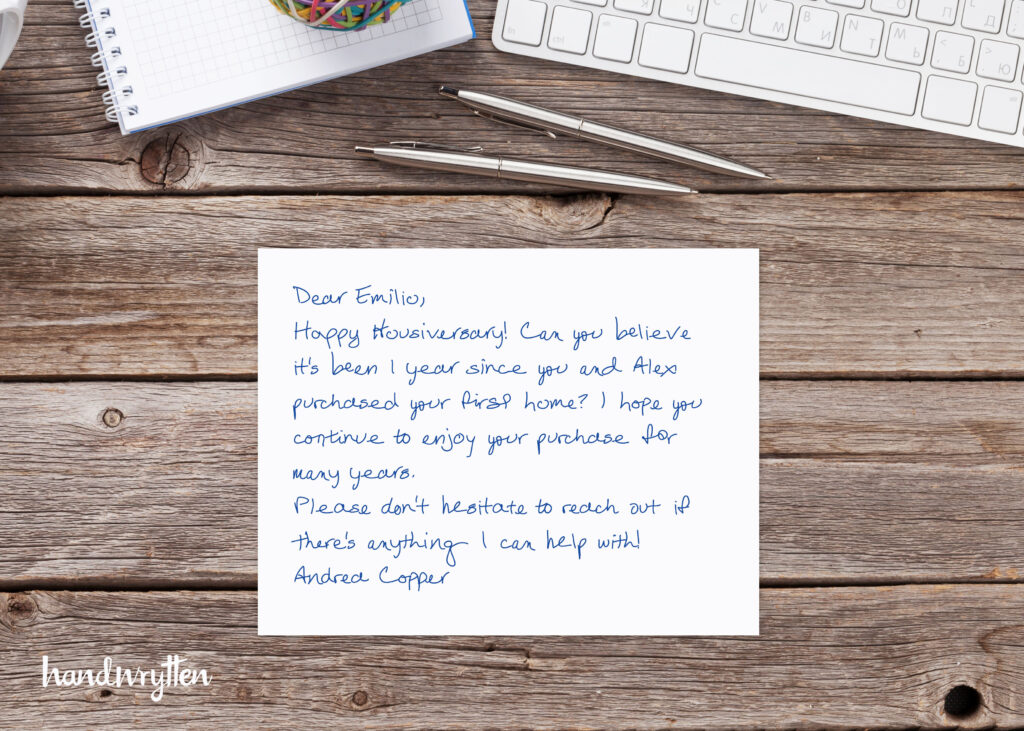 Dear Emilio,
Happy Housiversary! Can you believe
it's been 1 year since you and Alex
purchased your first home? I hope you
continue to enjoy your purchase for
many years.
Please don't hesitate to reach out if
there's anything I can help with!
Andrea Copper
handwrytten